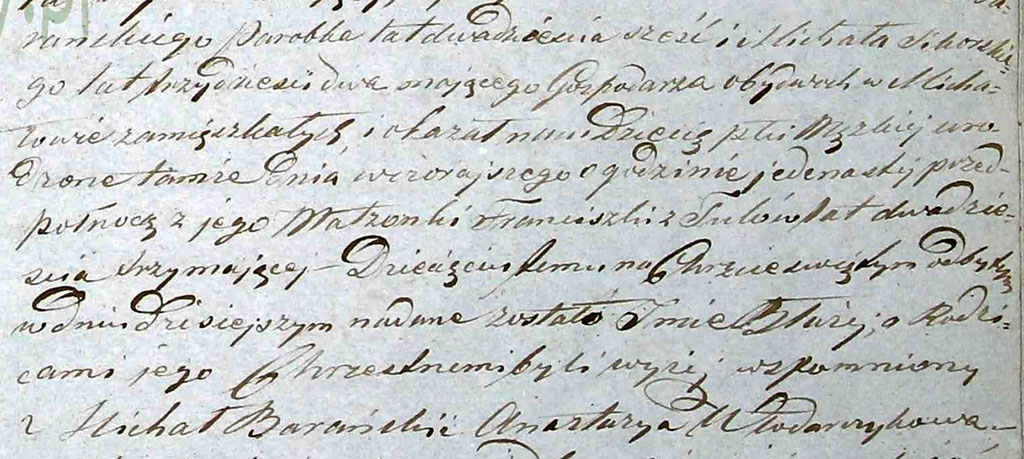 rańskiego Parobka lat dwadzieścia sześć i Michała Sikorskie-
go lat trzydzieści dwa mającego Gospodarza obydwóch w Micha-
łowie zamięszkałych, i okazał nam Dziecię płci Męzkiej uro
dzone tamże dnia wczorajszego o godzinie jedenastej przed
północą z jego Małżonki Franciszki z lat dwadzie-
ścia trzy mającej – Dziecięciu temu na Chrzcie świętym odbytym
w dniu dzisiejszym nadane zostało Imie Błażej, a Rodzi-
cami jego Chrzestnemi byli wyżej wspomniony
Michał Barański i Anastazya Włodarczykowa –